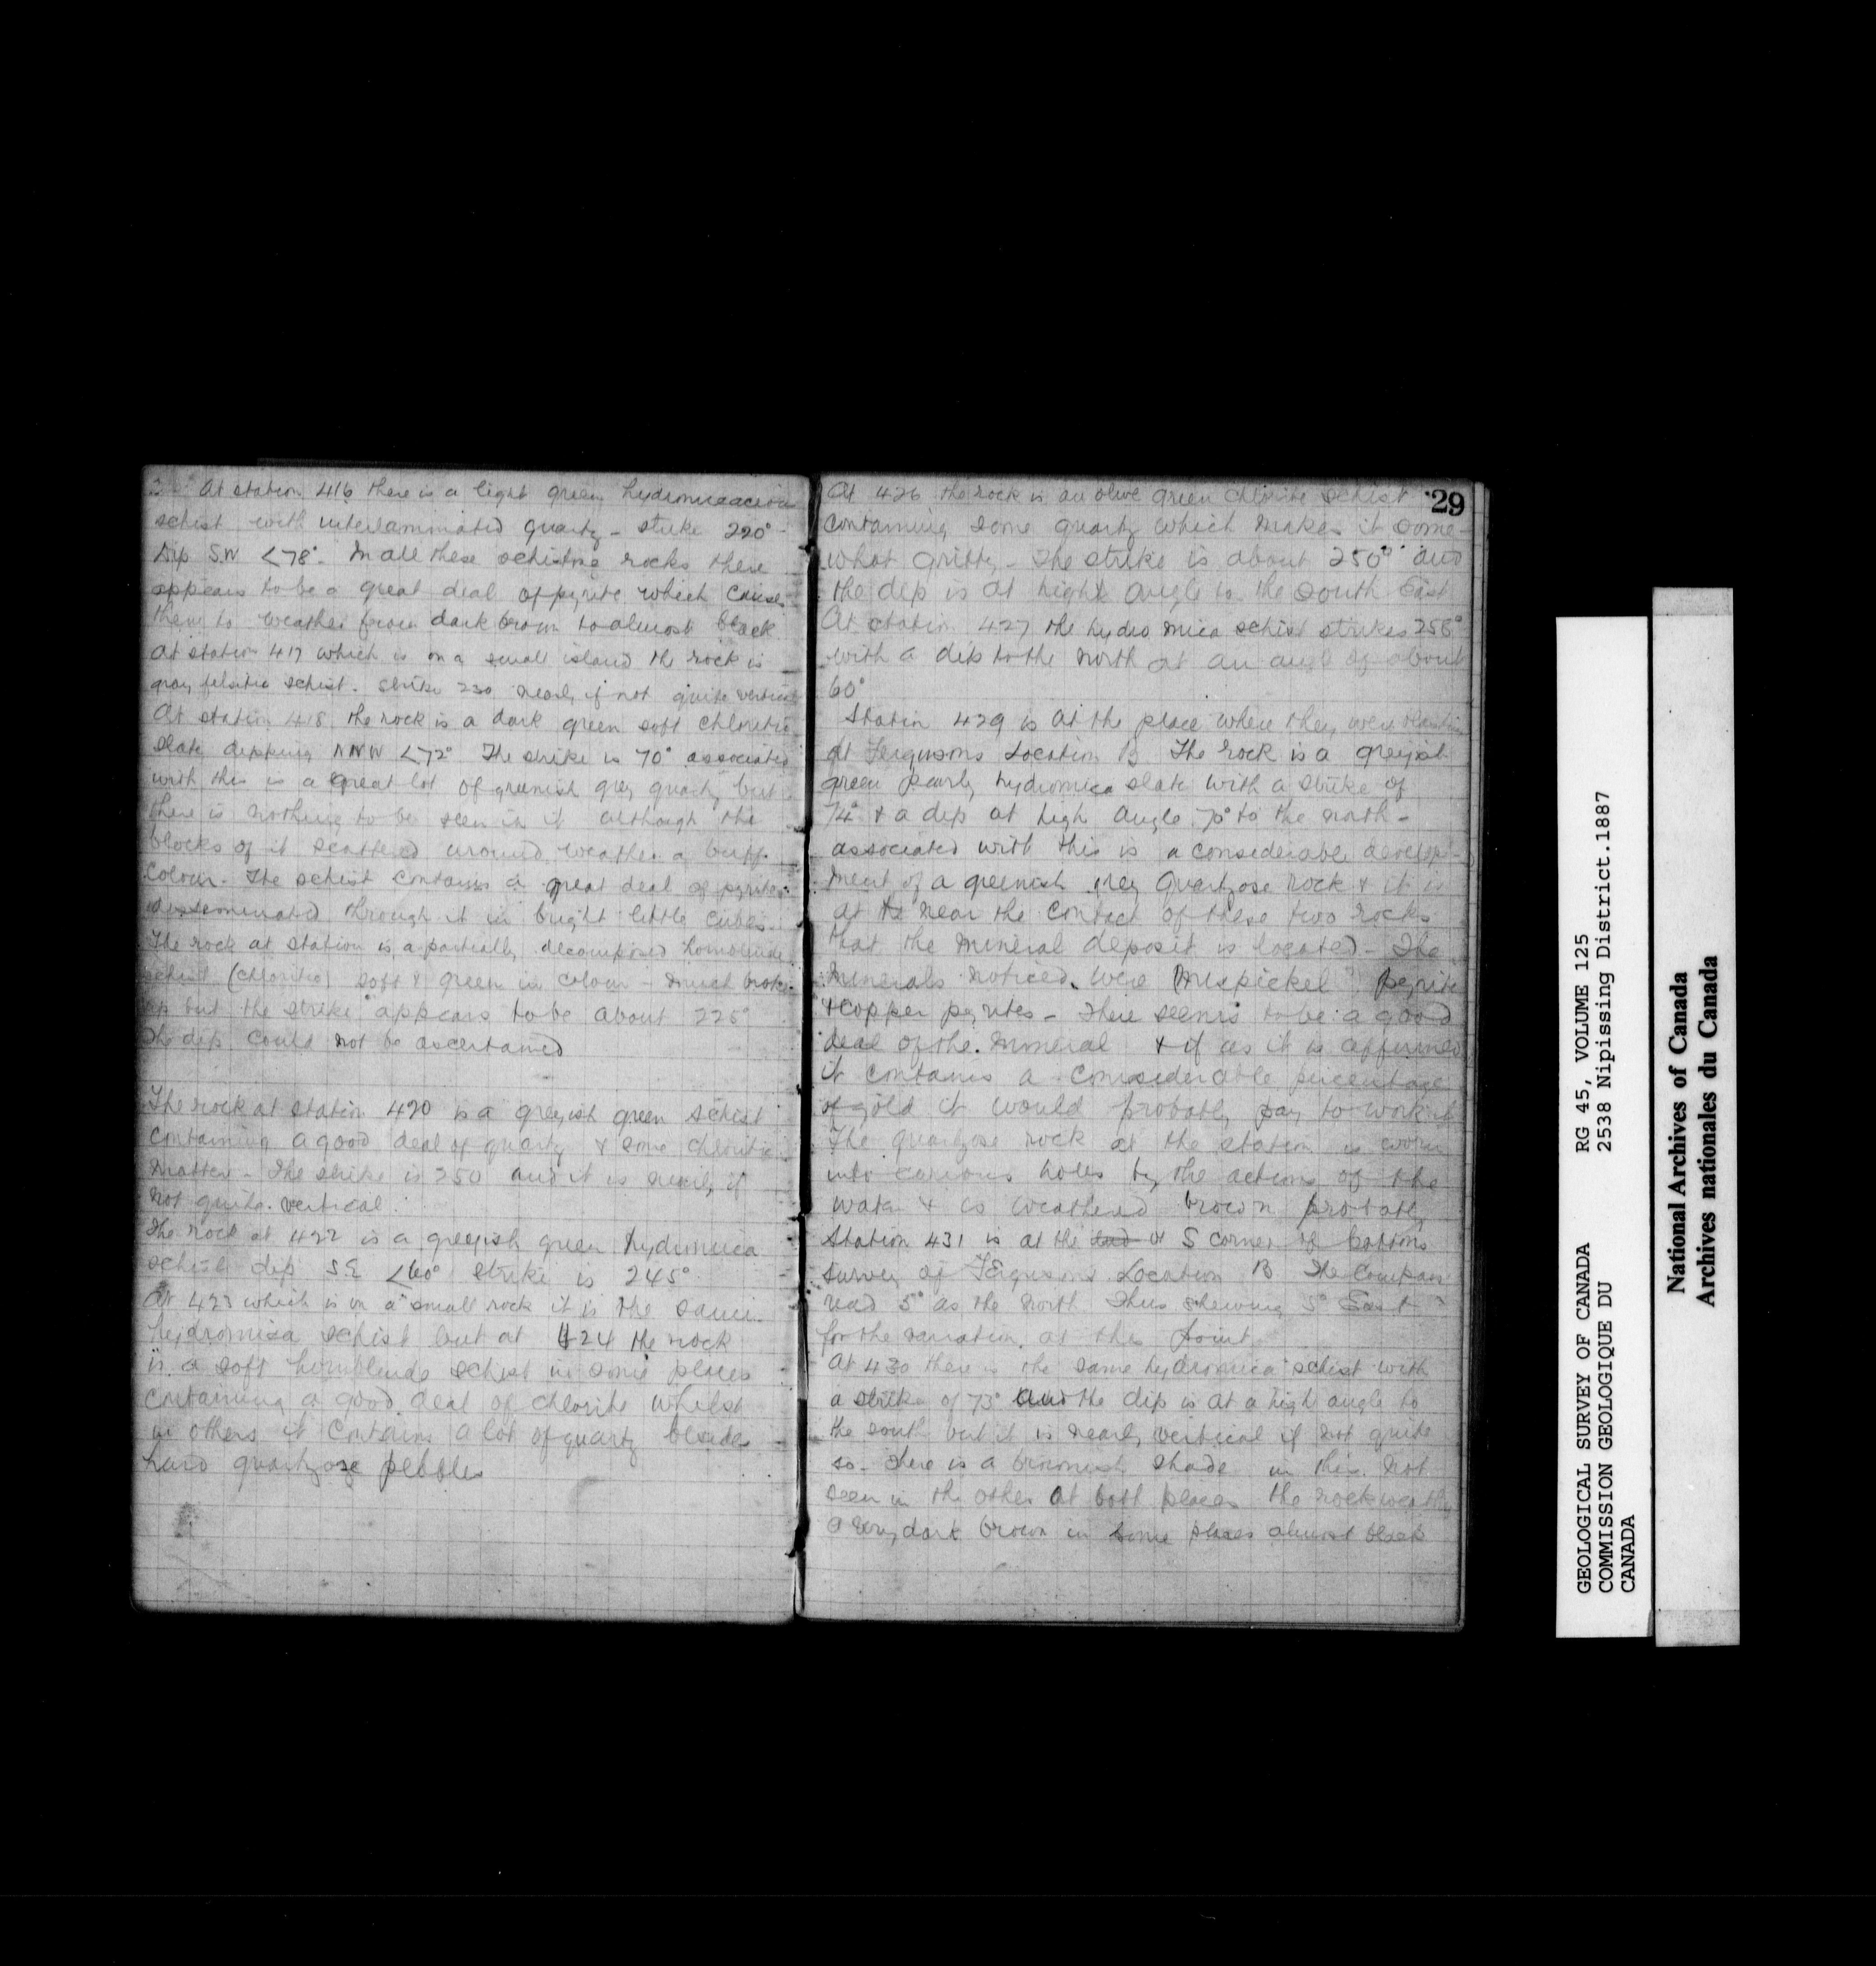 At station 416 there is a light green hydromicaceous
schist with interlaminated quartz - strike 220° -
Dip S.W <78°. In all these schistose rocks there
appears to be a great deal of pyrite which cause
them to weather from dark brown to almost black
At station 417 which is on a small island the rock is
gray felsitic schist. Strike 230 nearly if not quite vertical
At station 418 the rock is a dark green soft chloritic
slate dipping NNW <72° The strike is 70° associated
with this is a great lot of greenish grey quartz but
there is nothing to be seen in it although the
blocks of it scattered around weather a buff
colour. The schist contains a great deal of pyrites
disseminated through it in bright little cubes.
The rock at station is a partially decomposed hornblende
schist (chloritic) soft & green in colour - much broken
up but the strike appears to be about 225°
The dip could not be ascertained
The rock at station 420 is a greyish green schist
containing a good deal of quartz & some chloritic
matter - The strike is 250 and it is nearly if
not quite vertical.
The rock at 422 is a greyish green hydromica
schist dip S.E <60° strike is 245°
At 423 which is on a small rock it is the same
hydromica schist but at 424 the rock
is a soft hornblende schist in some places
containing a good deal of chlorite whilst
in others it contains a lot of quartz besides
hard quartzose pebbles
29
At 426 the rock is an olive green chlorite schist
containing some quartz which makes it some-
what gritty - The strike is about 250° and
the dip is at hight angle to the South East
At station 427 the hydro mica schist strikes 258°
with a dip to the north at an angle of about
60°
Station 429 is at the place where they were blasting
at Fergusons Location B The rock is a greyish
green pearly hydromica slate with a strike of
74° & a dip at high angle 70° to the north -
associated with this is a considerable develop-
ment of a greenish grey quartzose rock & it is
at the near the contact of these two rocks
that the mineral deposit is located - The
minerals noticed were Mispickel pyrite
& copper pyrites - There seems to be a good
deal of the mineral & if as it is affirmed
it contains a considerable percentage
of gold it would probably pay to work it
The quartzose rock at the station is worn
into curious holes by the actions of the
water & is weathered brown probably
Station 431 is at the S corner of
survey of Fergusons Location B The Compass
read 5° as the north Thus shewing 5° East
for the variation at this point.
At 430 there is the same hydromica schist with
a strike of 73° and the dip is at a high angle to
the south but it is nearly vertical if not quite
so. There is a brownish shade in this not
seen in the other at both places the rock weathers
a very dark brown in some places almost black
GEOLOGICAL SURVEY OF CANADA RG 45, VOLUME 125
COMMISSION GEOLOGIQUE DU 2538 Nipissing District.1887
CANADA
National Archives of Canada
Archives nationales du Canada